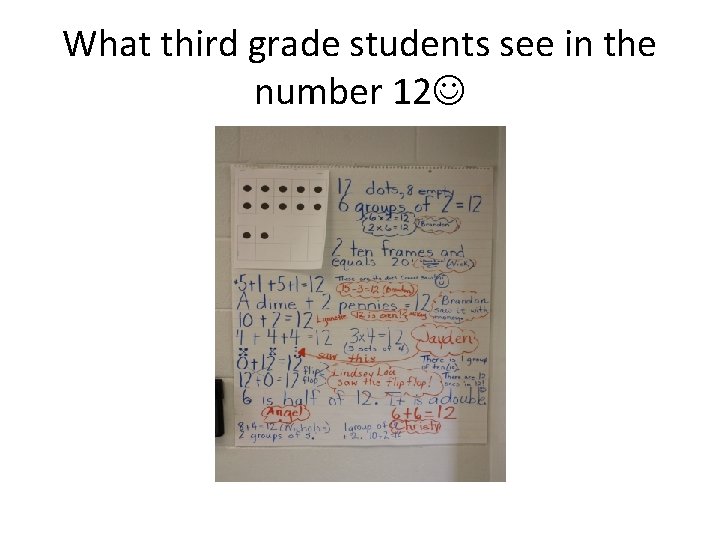 What third grade students see in the
number 12☺
12 dots, 8 empty
6 groups of 2 = 12
6 x 2 = 12
2 x 6 = 12
Brandon
2 ten frames and
equals 20
(Nick)
5+1+5+1=12
15-3=12 (Brandon)
A dime + 2 pennies = 12
Brandon
saw it with
money
10 + 2 = 12
12 is even
4 + 4 + 4 = 12
3x4=12
(3 sets of 4)
Jayden
saw this
0+12=12
12+0=12
flip
flop
Lindsey Lou
saw the flip flop!
There is 1 group
of ten(10)
There are 12
ones in 12!
6 is half of 12. It is a double.
Angel
6+6=12
8+4=12 (Nicholas)
2 groups of
1 group of
Christy
+2. 10+2